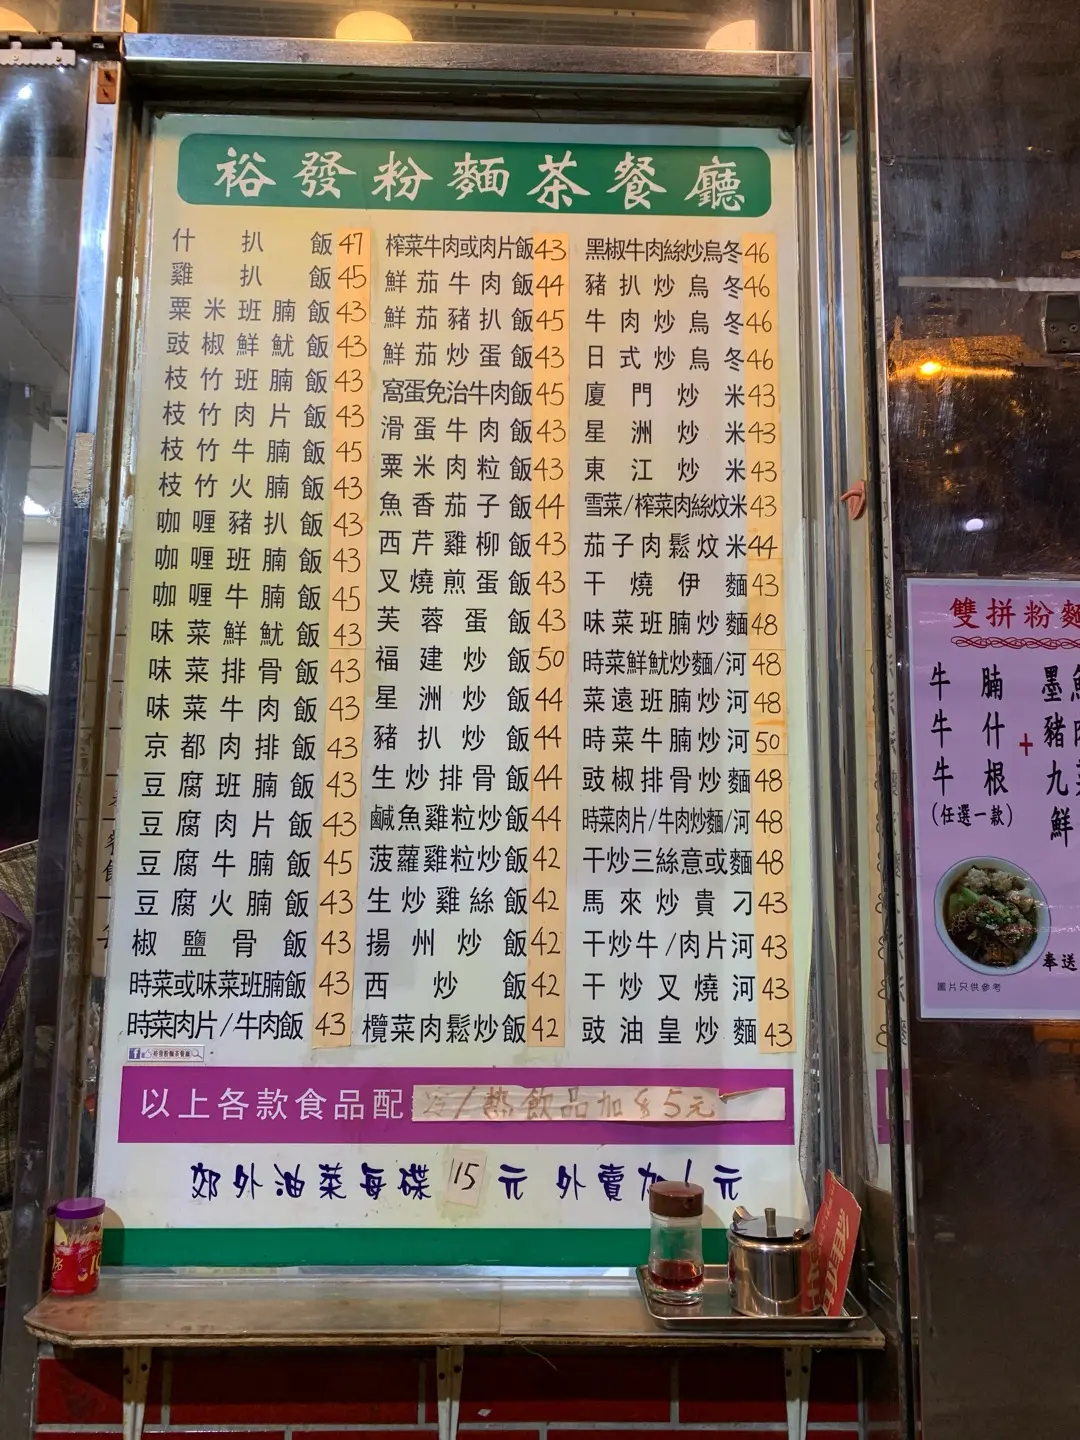 裕發粉麵茶餐廳
什扒飯47
雞扒飯45
粟米班腩飯43
豉椒鮮魷飯43
枝竹班腩飯43
枝竹肉片飯43
枝竹牛腩飯45
枝竹火腩飯43
咖喱豬扒飯43
咖喱班腩飯43
咖喱牛腩飯45
味菜鮮魷飯43
味菜排骨飯43
味菜牛肉飯43
京都肉排飯43
豆腐班腩飯43
豆腐肉片飯43
豆腐牛腩飯45
豆腐火腩飯43
椒鹽骨飯43
時菜或味菜班腩飯43
時菜肉片/牛肉飯43
榨菜牛肉或肉片飯43
鮮茄牛肉飯44
鮮茄豬扒飯45
鮮茄炒蛋飯43
窩蛋免治牛肉飯45
滑蛋牛肉飯43
粟米肉粒飯43
魚香茄子飯44
西芹雞柳飯43
叉燒煎蛋飯43
芙蓉蛋飯43
福建炒飯50
星洲炒飯44
豬扒炒飯44
生炒排骨飯44
鹹魚雞粒炒飯44
菠蘿雞粒炒飯42
生炒雞絲飯42
揚州炒飯42
西炒飯42
欖菜肉鬆炒飯42
黑椒牛肉絲炒烏冬46
豬扒炒烏冬46
牛肉炒烏冬46
日式炒烏冬46
廈門炒米43
星洲炒米43
東江炒米43
雪菜/榨菜肉絲炆米43
茄子肉鬆炆米44
干燒伊麵43
味菜班腩炒麵48
時菜鮮魷炒麵/河48
菜遠班腩炒河48
時菜牛腩炒河50
豉椒排骨炒麵48
時菜肉片/牛肉炒麵/河48
干炒三絲意或麵48
馬來炒貴刁43
干炒牛/肉片河43
干炒叉燒河43
豉油皇炒麵43
裕發粉麵茶餐廳
以上各款食品配 冷/熱飲品加多5元
郊外油菜每碟15元 外賣加1元
雙拼粉麵
牛腩
牛什
牛根
(任選一款)
+
豬
九
鮮
奉送
圖片只供參考